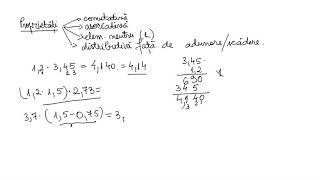 Proprietăți
comutativă
asociativă
elem. neutru (1)
distributivă față de adunare/scădere.
1,2 · 3,45 = 4,140 = 4,14
1 2 3
3,45 ·
1,2
690
345
4,140
(1,2 · 1,5) · 2,73 =
3,7 · (1,5 - 0,75) = 3,